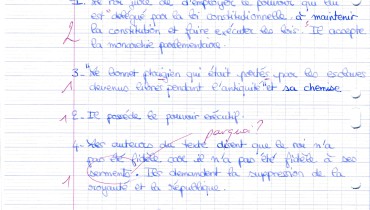 1. Le roi jure de d'employer ce pouvoir qui lui
est "délégué par la loi constitutionnelle, à maintenir
la constitution et faire exécuter les lois". Il accepte
la monarchie parlementaire.
2
3. "Le bonnet phrygien qui était portés par les esclaves
devenus libres pendant l'antiquité" et sa chemise.
1
1 2. Il possède le pouvoir exécutif.
parquoi ?
4. Les auteurs du texte disent que le roi n'a
pas été fidèle car il n'a pas "été fidèle à ses
serments". Ils demandent la suppression de la
1 royauté et la république.